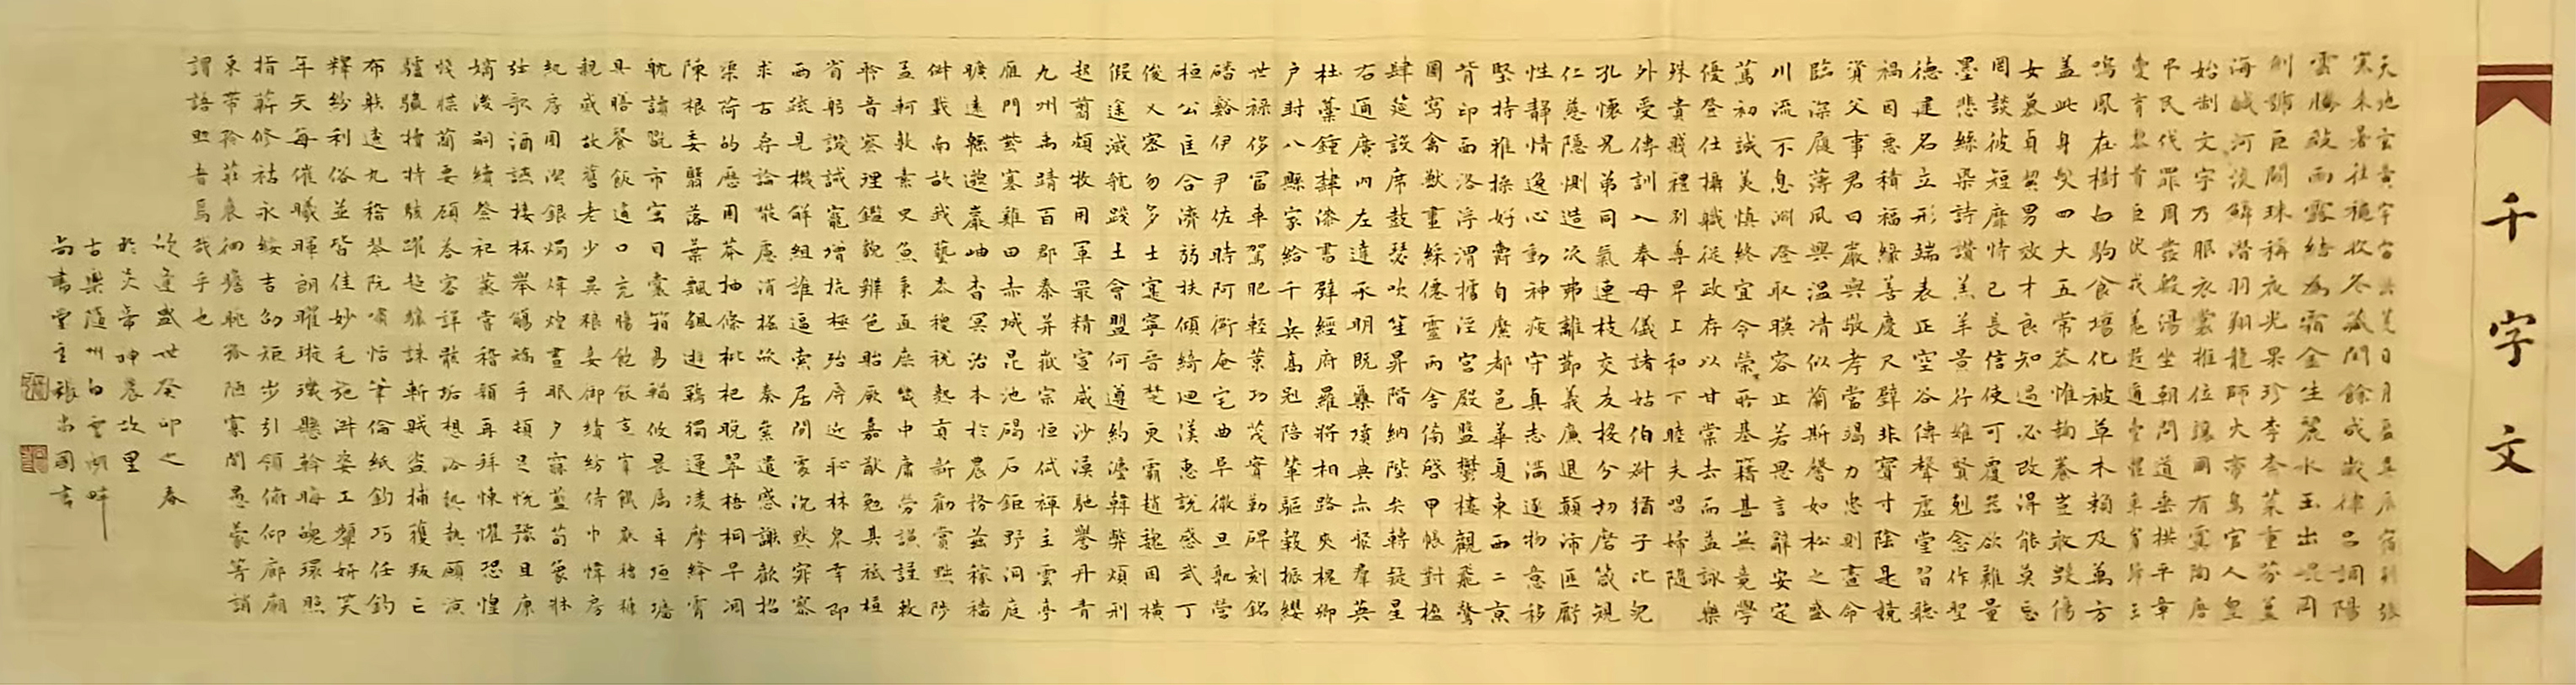 千字文
天地玄黃宇宙洪荒日月盈昃辰宿列張
寒來暑往秋收冬藏閏餘成歲律呂調陽
雲騰致雨露結為霜金生麗水玉出崐岡
劍號巨闕珠稱夜光果珍李柰菜重芥薑
海鹹河淡鱗潛羽翔龍師火帝鳥官人皇
始制文字乃服衣裳推位讓國有虞陶唐
弔民伐罪周發殷湯坐朝問道垂拱平章
愛育黎首臣伏戎羌遐邇壹體率賓歸王
鳴鳳在樹白駒食場化被草木賴及萬方
蓋此身髮四大五常恭惟鞠養豈敢毀傷
女慕貞絜男效才良知過必改得能莫忘
罔談彼短靡恃己長信使可覆器欲難量
墨悲絲染詩讚羔羊景行維賢剋念作聖
德建名立形端表正空谷傳聲虛堂習聽
禍因惡積福緣善慶尺璧非寶寸陰是競
資父事君曰嚴與敬孝當竭力忠則盡命
臨深履薄夙興溫凊似蘭斯馨如松之盛
川流不息淵澄取暎容止若思言辭安定
篤初誠美慎終宜令榮業所基籍甚無竟學
優登仕攝職從政存以甘棠去而益詠樂
殊貴賤禮別尊卑上和下睦夫唱婦隨
外受傅訓入奉母儀諸姑伯叔猶子比兒
孔懷兄弟同氣連枝交友投分切磨箴規
仁慈隱惻造次弗離節義廉退顛沛匪虧
性靜情逸心動神疲守真志滿逐物意移
堅持雅操好爵自縻都邑華夏東西二京
背邙面洛浮渭據涇宮殿盤鬱樓觀飛驚
圖寫禽獸畫綵僊靈丙舍傍啓甲帳對楹
肆筵設席鼓瑟吹笙昇階納陛弁轉疑星
右通廣內左達承明既集墳典亦聚群英
杜稾鍾隸漆書壁經府羅將相路俠槐卿
戶封八縣家給千兵高冠陪輦驅轂振纓
世祿侈富車駕肥輕策功茂實勒碑刻銘
磻谿伊尹佐時阿衡奄宅曲阜微旦孰營
桓公匡合濟弱扶傾綺迴漢惠說感武丁
俊乂密勿多士寔寧晉楚更霸趙魏困橫
假途滅虢踐土會盟何遵約法韓弊煩刑
起翦頗牧用軍最精宣威沙漠馳譽丹青
九州禹跡百郡秦并嶽宗恒岱禪主雲亭
雁門紫塞雞田赤城昆池碣石鉅野洞庭
曠遠緜邈巖岫杳冥治本於農務茲稼穡
俶載南畝我藝黍稷稅熟貢新勸賞黜陟
孟軻敦素史魚秉直庶幾中庸勞謙謹敕
聆音察理鑑貌辨色貽厥嘉猷勉其祗植
省躬譏誡寵增抗極殆辱近恥林皋幸即
兩疏見機解組誰逼索居閑處沈默寂寥
求古尋論散慮逍遙欣奏累遣慼謝歡招
渠荷的歷園莽抽條枇杷晚翠梧桐早凋
陳根委翳落葉飄颻遊鵾獨運凌摩絳霄
耽讀翫市寓目囊箱易輶攸畏屬耳垣墻
具膳餐飯適口充腸飽飫烹宰飢厭糟糠
親戚故舊老少異糧妾御績紡侍巾帷房
紈扇圓潔銀燭煒煌晝眠夕寐藍筍象牀
弦歌酒讌接杯舉觴矯手頓足悅豫且康
嫡後嗣續祭祀蒸嘗稽顙再拜悚懼恐惶
牋牒簡要顧答審詳骸垢想浴執熱願涼
驢騾犢特駭躍超驤誅斬賊盜捕獲叛亡
布射遼丸嵇琴阮嘯恬筆倫紙鈞巧任釣
釋紛利俗並皆佳妙毛施淑姿工顰妍笑
年矢每催曦暉朗曜璇璣懸斡晦魄環照
指薪修祜永綏吉劭矩步引領俯仰廊廟
束帶矜莊徘徊瞻眺孤陋寡聞愚蒙等誚
謂語助者焉哉乎也
欣逢盛世癸卯之春
於炎帝神農故里
古樂隨州白雲湖畔
尚書堂主張尚國書